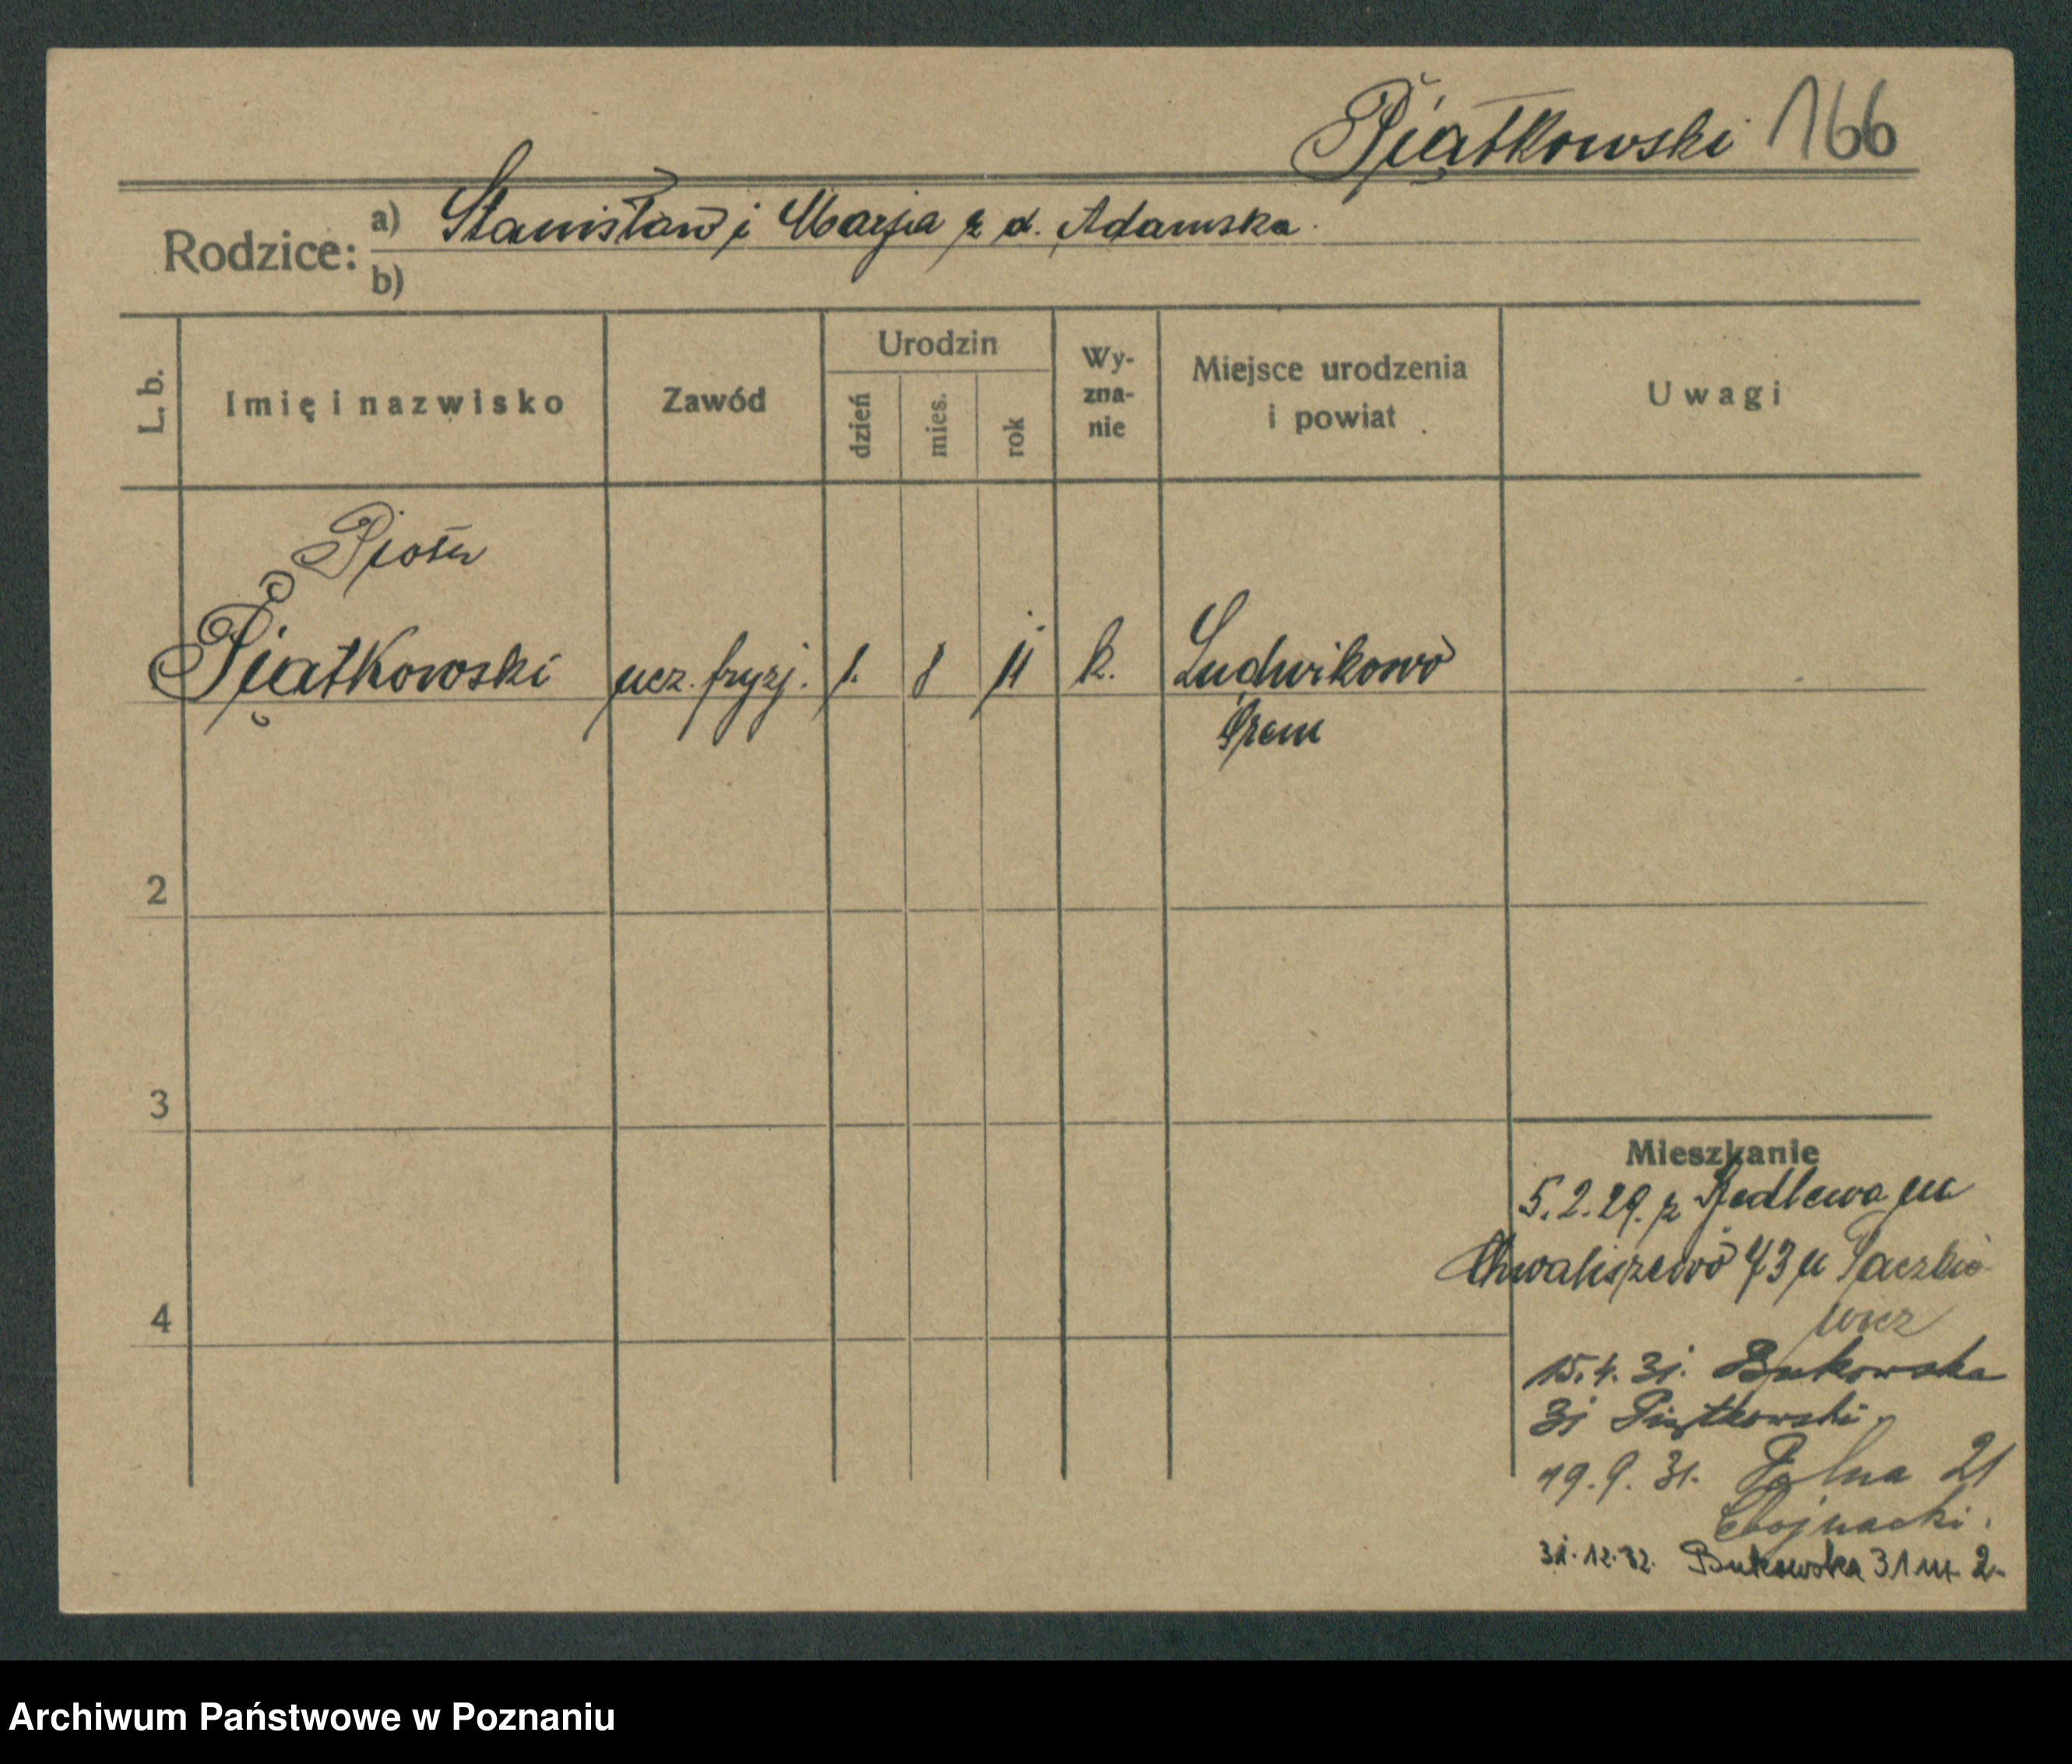 Piątkowski 166
Rodzice: a) Stanisław i Marja z d. Adamska
b)
L. b.
Imię i nazwisko
Zawód
Urodzin
dzień
mies.
rok
Wy-
zna-
nie
Miejsce urodzenia
i powiat
Uwagi
Piotr
Piątkowski ucz. fryzj. 1. 8 11 k. Ludwikowo
Śrem
2
3
4
Mieszkanie
5.2.29. z
Chwaliszewo 73 u Paczko
wicz
15.4.31. Bukowska
31 Piątkowski
19.9.31. Polna 21
Wojnacki.
31.12.32. Bukowska 31 m. 2.
Archiwum Państwowe w Poznaniu